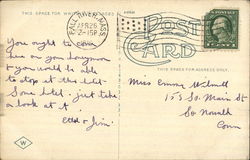 THIS SPACE FOR WRITING
FALL RIVER, MASS.
APR 26
2-15P
POST
CARD
THIS SPACE FOR ADDRESS ONLY.
You ought to come
here on your honeymoon
you would be able
to stop at this hotel
Some hotel. just take
a look at it
& Jim.
Miss Emma
155 So. Main St
So Norwalk
Conn
W